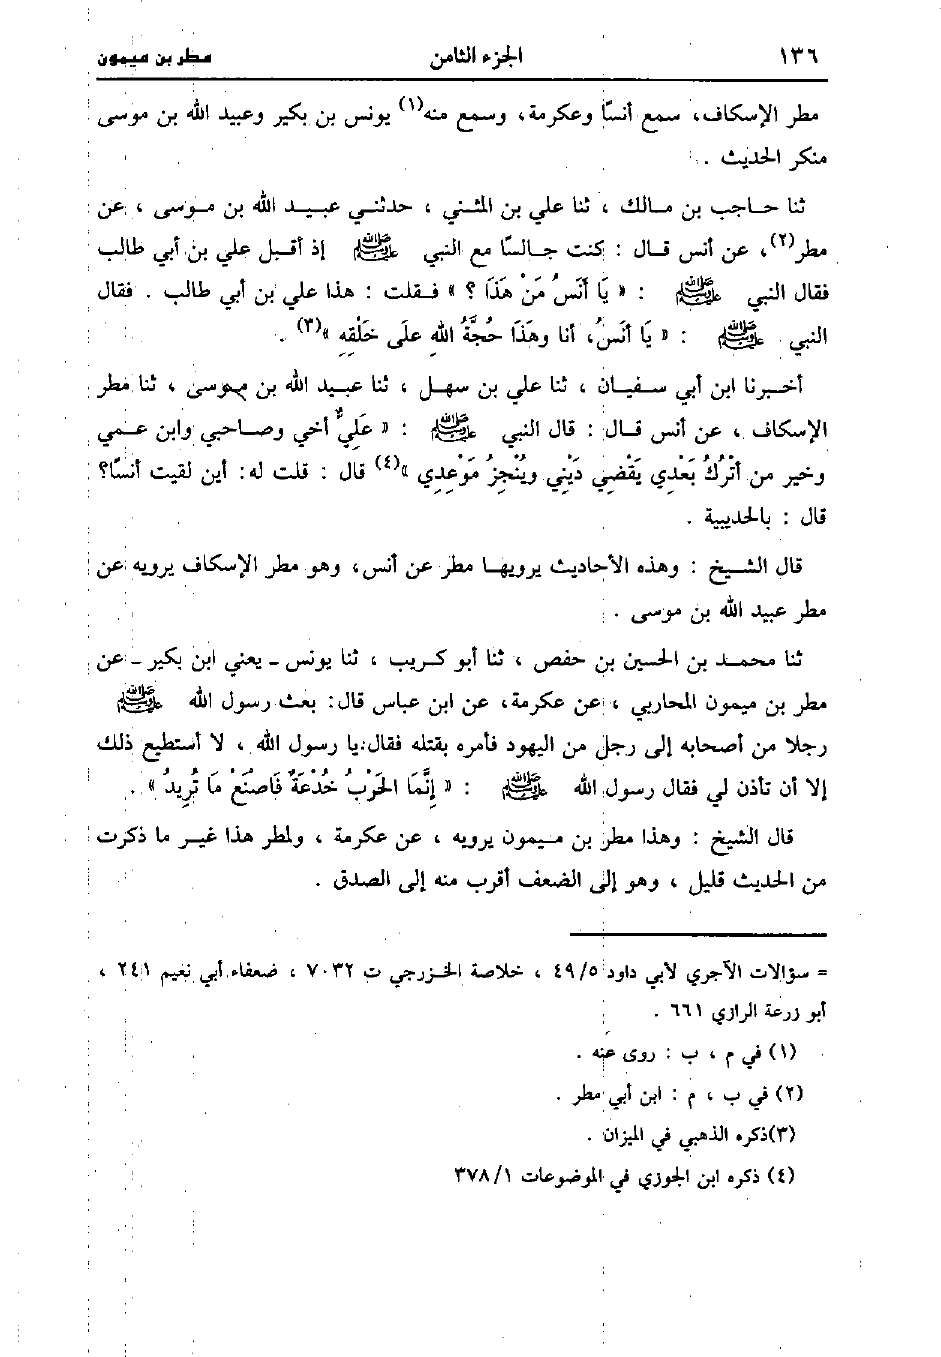 ١٣٦ الجزء الثامن مطر بن ميمون
مطر الإسكاف، سمع أنسًا وعكرمة، وسمع منه(١) يونس بن بكير وعبيد الله بن موسى
منكر الحديث .
ثنا حاجب بن مالك ، ثنا علي بن المثنى ، حدثني عبيد الله بن موسى ، عن
مطر(٢)، عن أنس قال : كنت جالسًا مع النبي ﷺ إذ أقبل علي بن أبي طالب
فقال النبي ﷺ : « يَا أَنَسُ مَنْ هَذَا ؟ » فقلت : هذا علي بن أبي طالب . فقال
النبي ﷺ : « يَا أَنَسُ، أنا وهَذَا حُجَّةُ اللهِ علَى خَلْقِهِ »(٣) .
أخبرنا ابن أبي سفيان ، ثنا علي بن سهل ، ثنا عبيد الله بن موسى ، ثنا مطر
الإسكاف ، عن أنس قال : قال النبي ﷺ : « عَلِيٌّ أخي وصاحبي وابن عمي
وخير من أَتْرُكُ بَعْدِي يَقْضِي دَيْنِي ويُنْجِزُ مَوْعِدِي »(٤) قال : قلت له: أين لقيت أنسًا؟
قال : بالحديبية .
قال الشيخ : وهذه الأحاديث يرويها مطر عن أنس، وهو مطر الإسكاف يرويه عن
مطر عبيد الله بن موسى .
ثنا محمد بن الحسين بن حفص ، ثنا أبو كريب ، ثنا يونس - يعني ابن بكير - عن
مطر بن ميمون المحاربي ، عن عكرمة، عن ابن عباس قال: بعث رسول الله ﷺ
رجلا من أصحابه إلى رجل من اليهود فأمره بقتله فقال: يا رسول الله ، لا أستطيع ذلك
إلا أن تأذن لي فقال رسول الله ﷺ : « إِنَّمَا الحَرْبُ خُدْعَةٌ فَاصْنَعْ مَا تُرِيدُ » .
قال الشيخ : وهذا مطر بن ميمون يرويه ، عن عكرمة ، ولمطر هذا غير ما ذكرت
من الحديث قليل ، وهو إلى الضعف أقرب منه إلى الصدق .
= سؤالات الآجري لأبي داود ٤٩/٥ ، خلاصة الخزرجي ت ٧٠٣٢ ، ضعفاء أبي نعيم ٢٤١ ،
أبو زرعة الرازي ٦٦١ .
(١) في م ، ب : روى عنه .
(٢) في ب ، م : ابن أبي مطر .
(٣)ذكره الذهبي في الميزان .
(٤) ذكره ابن الجوزي في الموضوعات ٣٧٨/١